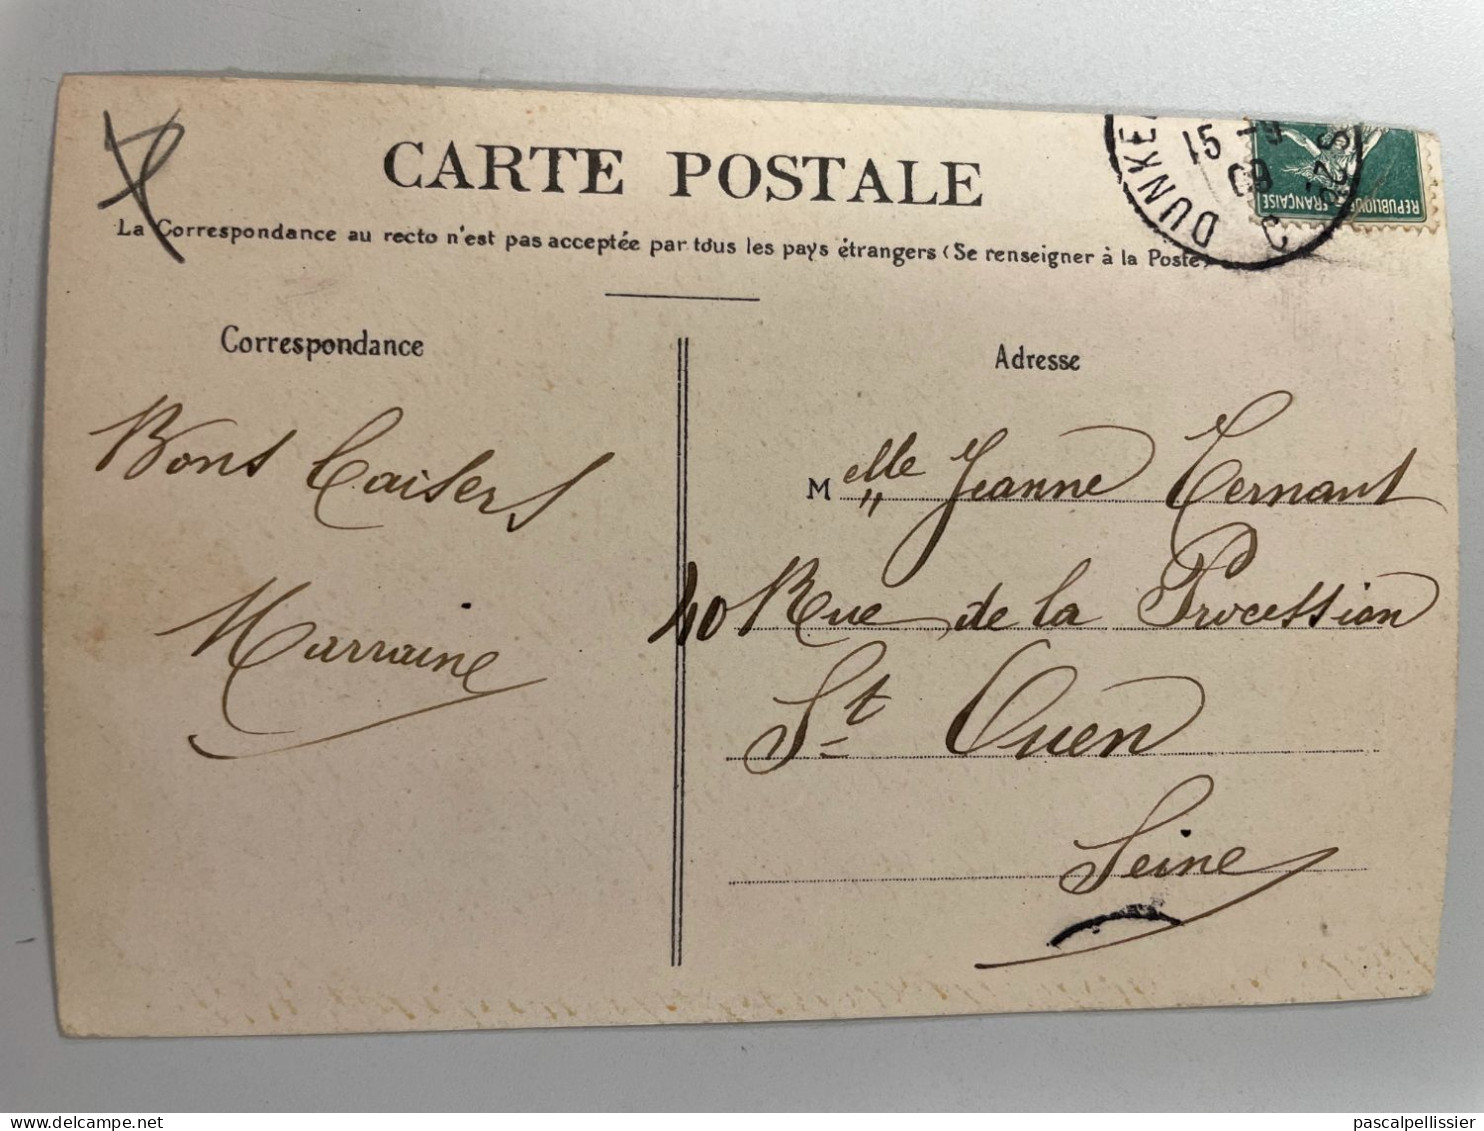 CARTE POSTALE
La Correspondance au recto n'est pas acceptée par tous les pays étrangers (Se renseigner à la Poste)
DUNKE
15 -9
09
REPUBLIQUE FRANÇAISE
Correspondance
Bons Baisers
Marraine
Adresse
Melle Jeanne Ternant
40 Rue de la Procession
St Ouen
Seine
pascalpellissier